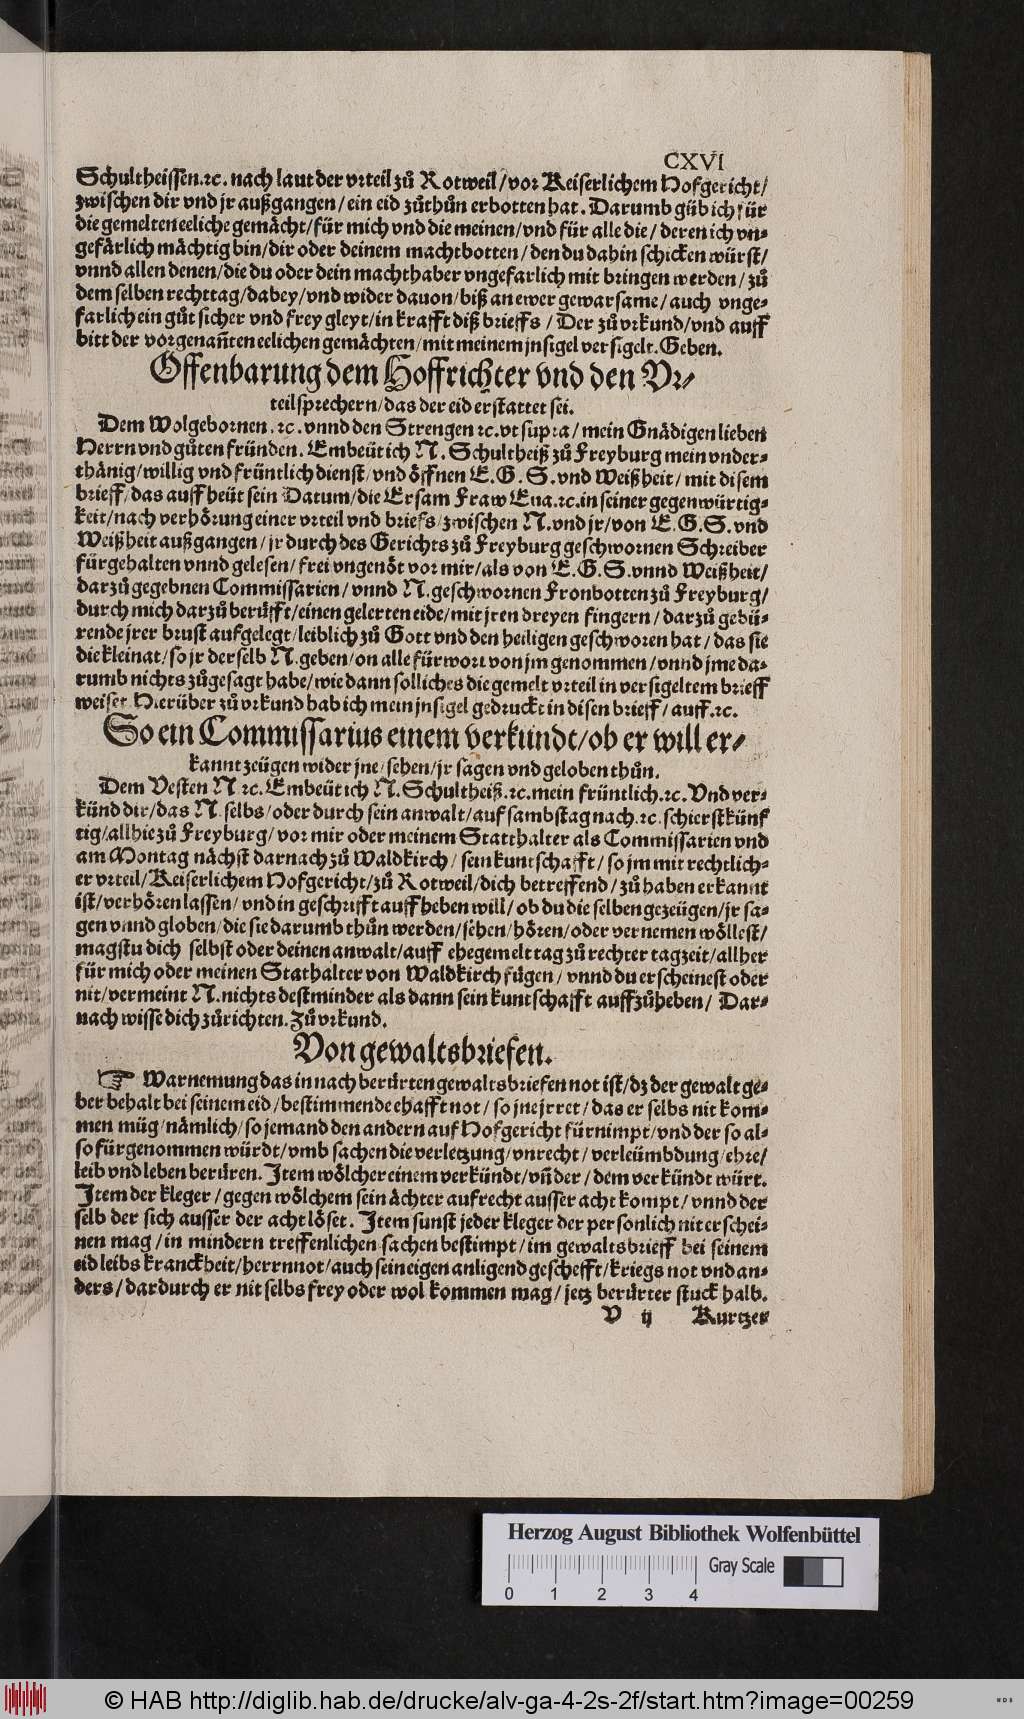 CXVI
Schultheissen.ꝛc. nach laut der vrteil zů Rotweil/vor Keiserlichem Hofgericht/
zwischen dir vnd jr außgangen/ein eid zůthůn erbotten hat. Darumb güb ich für
die gemelten eeliche gemächt/für mich vnd die meinen/vnd für alle die/deren ich vn⸗
gefärlich mächtig bin/dir oder deinem machtbotten/den du dahin schicken würst/
vnnd allen denen/die du oder dein machthaber vngefarlich mit bringen werden/zů
dem selben rechttag/dabey/vnd wider dauon/biß an ewer gewarsame/auch vnge⸗
farlich ein gůt sicher vnd frey gleyt/in krafft diß brieffs/Der zů vrkund/vnd auff
bitt der vorgenañten eelichen gemächten/mit meinem jnsigel versigelt. Geben.
Offenbarung dem Hoffrichter vnd den Vr⸗
teilsprechern/das der eid erstattet sei.
Dem Wolgebornen.ꝛc. vnnd den Strengen ꝛc. vt supra/mein Gnädigen lieben
Herrn vnd gůten fründen. Embeüt ich N. Schultheiß zů Freyburg mein vnder⸗
thänig/willig vnd früntlich dienst/vnd öffnen E.G.S. vnd Weißheit/mit disem
brieff/das auff heüt sein Datum/die Ersam Fraw Eua.ꝛc. in seiner gegenwürtig⸗
keit/nach verhörung einer vrteil vnd briefs/zwischen N. vnd jr/von E.G.S. vnd
Weißheit außgangen/jr durch des Gerichts zů Freyburg geschwornen Schreiber
fürgehalten vnnd gelesen/frei vngenöt vor mir/als von E.G.S. vnnd Weißheit/
darzů gegebnen Commissarien/vnnd N. geschwornen Fronbotten zů Freyburg/
durch mich darzů berüfft/einen gelerten eide/mit jren dreyen fingern/darzů gebü⸗
rende jrer brust aufgelegt/leiblich zů Gott vnd den heiligen geschworen hat/das sie
die kleinat/so jr derselb N. geben/on alle fürwort von jm genommen/vnnd jme da⸗
rumb nichts zůgesagt habe/wie dann solliches die gemelt vrteil in versigeltem brieff
weiset. Hierüber zů vrkund hab ich mein jnsigel gedruckt in disen brieff/auff.ꝛc.
So ein Commissarius einem verkündt/ob er will er⸗
kannt zeügen wider jne/sehen/jr sagen vnd geloben thůn.
Dem Vesten N.ꝛc. Embeüt ich N. Schultheiß.ꝛc. mein früntlich.ꝛc. Vnd ver⸗
künd dir/das N. selbs/oder durch sein anwalt/auf sambstag nach.ꝛc. schierstkünf
tig/allhie zů Freyburg/vor mir oder meinem Statthalter als Commissarien vnd
am Montag nächst darnach zů Waldkirch/sein kuntschafft/so jm mit rechtlich⸗
er vrteil/Keiserlichem Hofgericht/zů Rotweil/dich betreffend/zů haben erkannt
ist/verhören lassen/vnd in geschrifft auff heben will/ob du die selben gezeügen/jr sa⸗
gen vnnd globen/die sie darumb thůn werden/sehen/hören/oder vernemen wöllest/
magstu dich selbst oder deinen anwalt/auff ehegemelt tag zů rechter tagzeit/allher
für mich oder meinen Stathalter von Waldkirch fügen/vnnd du erscheinest oder
nit/vermeint N. nichts destminder als dann sein kuntschafft auffzůheben/Dar⸗
nach wisse dich zůrichten. Zů vrkund.
Von gewaltsbriefen.
☞ Warnemung das in nach berürten gewaltsbriefen not ist/dz der gewalt ge⸗
ber behalt bei seinem eid/bestimmende ehafft not/so jne jrret/das er selbs nit kom⸗
men müg/nämlich/so jemand den andern auf Hofgericht fürnimpt/vnd der so al⸗
so fürgenommen würdt/vmb sachen die verletzung/vnrecht/verleümbdung/ehre/
leib vnd leben berüren. Item wölcher einem verkündt/vñ der/dem verkündt würt.
Item der kleger/gegen wölchem sein ächter aufrecht ausser acht kompt/vnnd der
selb der sich ausser der acht löset. Item sunst jeder kleger der persönlich nit erschei⸗
nen mag/in mindern treffenlichen sachen bestimpt/im gewaltsbrieff bei seinem
eid leibs kranckheit/herrnnot/auch sein eigen anligend geschefft/kriegs not vnd an⸗
ders/dardurch er nit selbs frey oder wol kommen mag/jetz berürter stuck halb.
V ij Kurtzer
Herzog August Bibliothek Wolfenbüttel
Gray Scale
0 1 2 3 4
© HAB http://diglib.hab.de/drucke/alv-ga-4-2s-2f/start.htm?image=00259